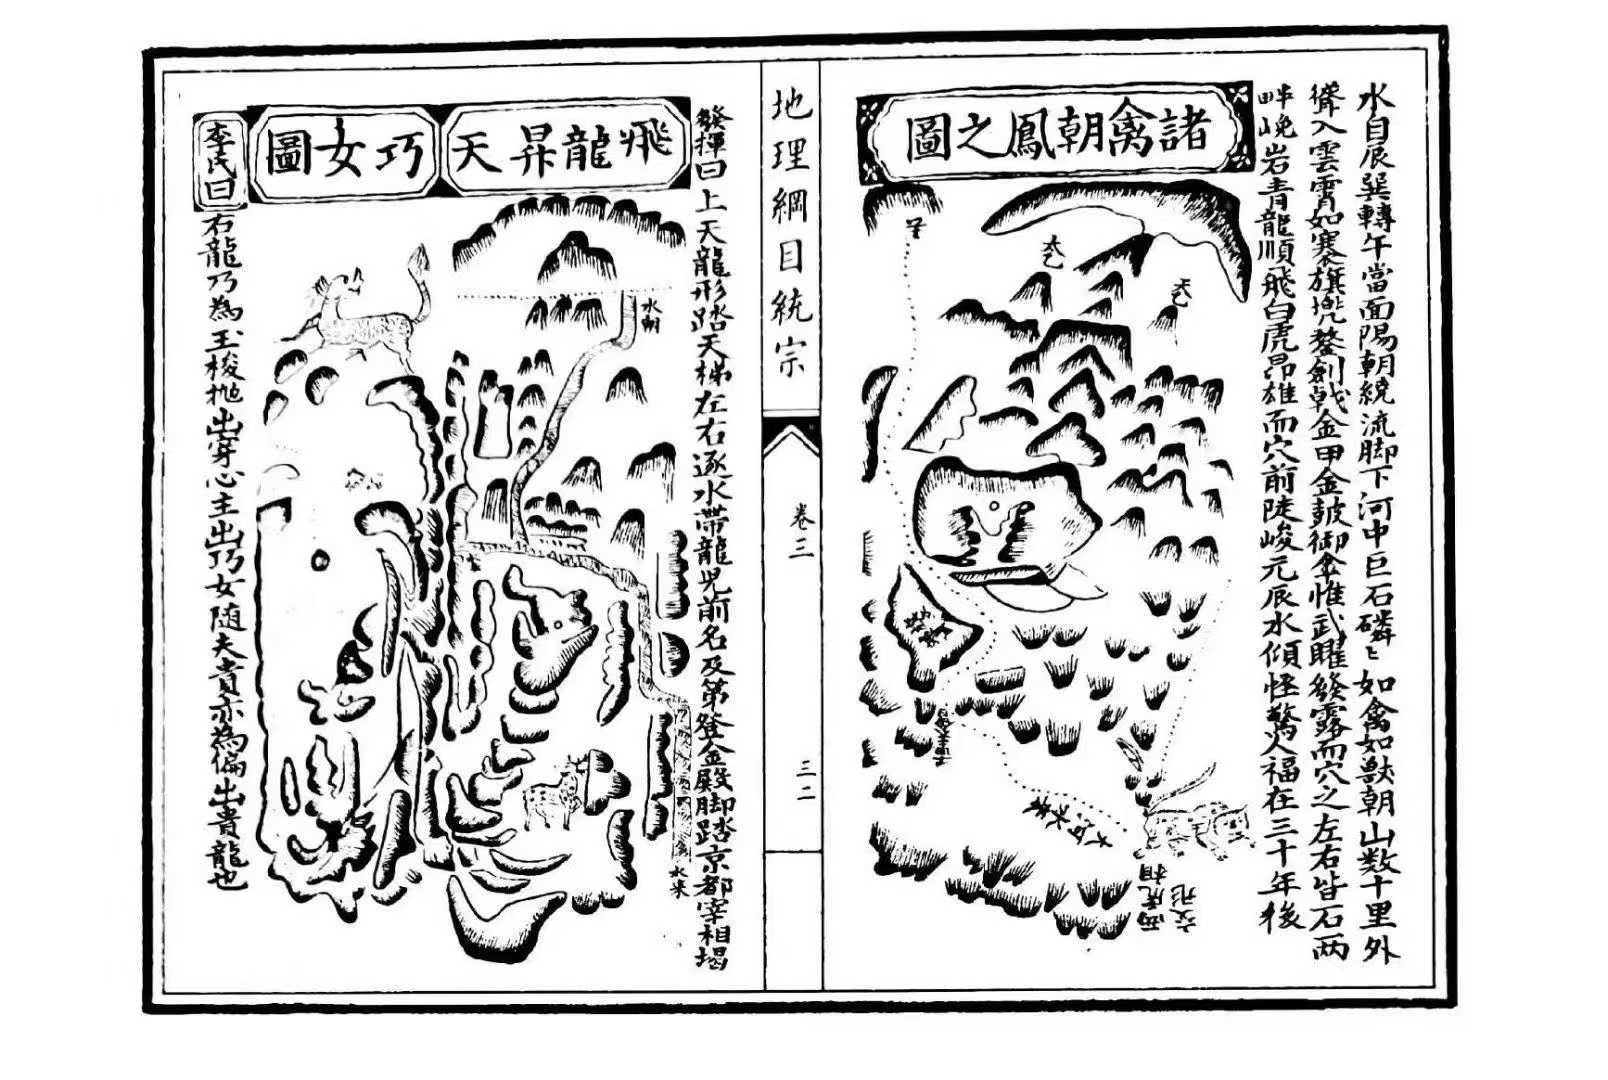 水自辰巽轉午當面陽朝繞流脚下河中巨石磷〻如禽如獸朝山数十里外
聳入雲霄如寨旗㧡鏊創戟金甲金皷御伞惟武曜發露而穴之左右皆石两
畔巉岩青龍順飛白虎昂雄而穴前陡峻元辰水傾怪驚人福在三十年後
諸禽朝鳳之圖
呈
太乙
天乙
大河水來
两虎相
交形
地理綱目統宗
卷三
三二
發揮曰上天龍形踏天梯左右逐水帶龍児前名及第登金殿脚踏京都宰相堨
飛龍昇天
巧女圖
水朝
水來
李氏曰右龍乃為玉梭抛出穿心主出巧女随夫貴亦為偏出貴龍也